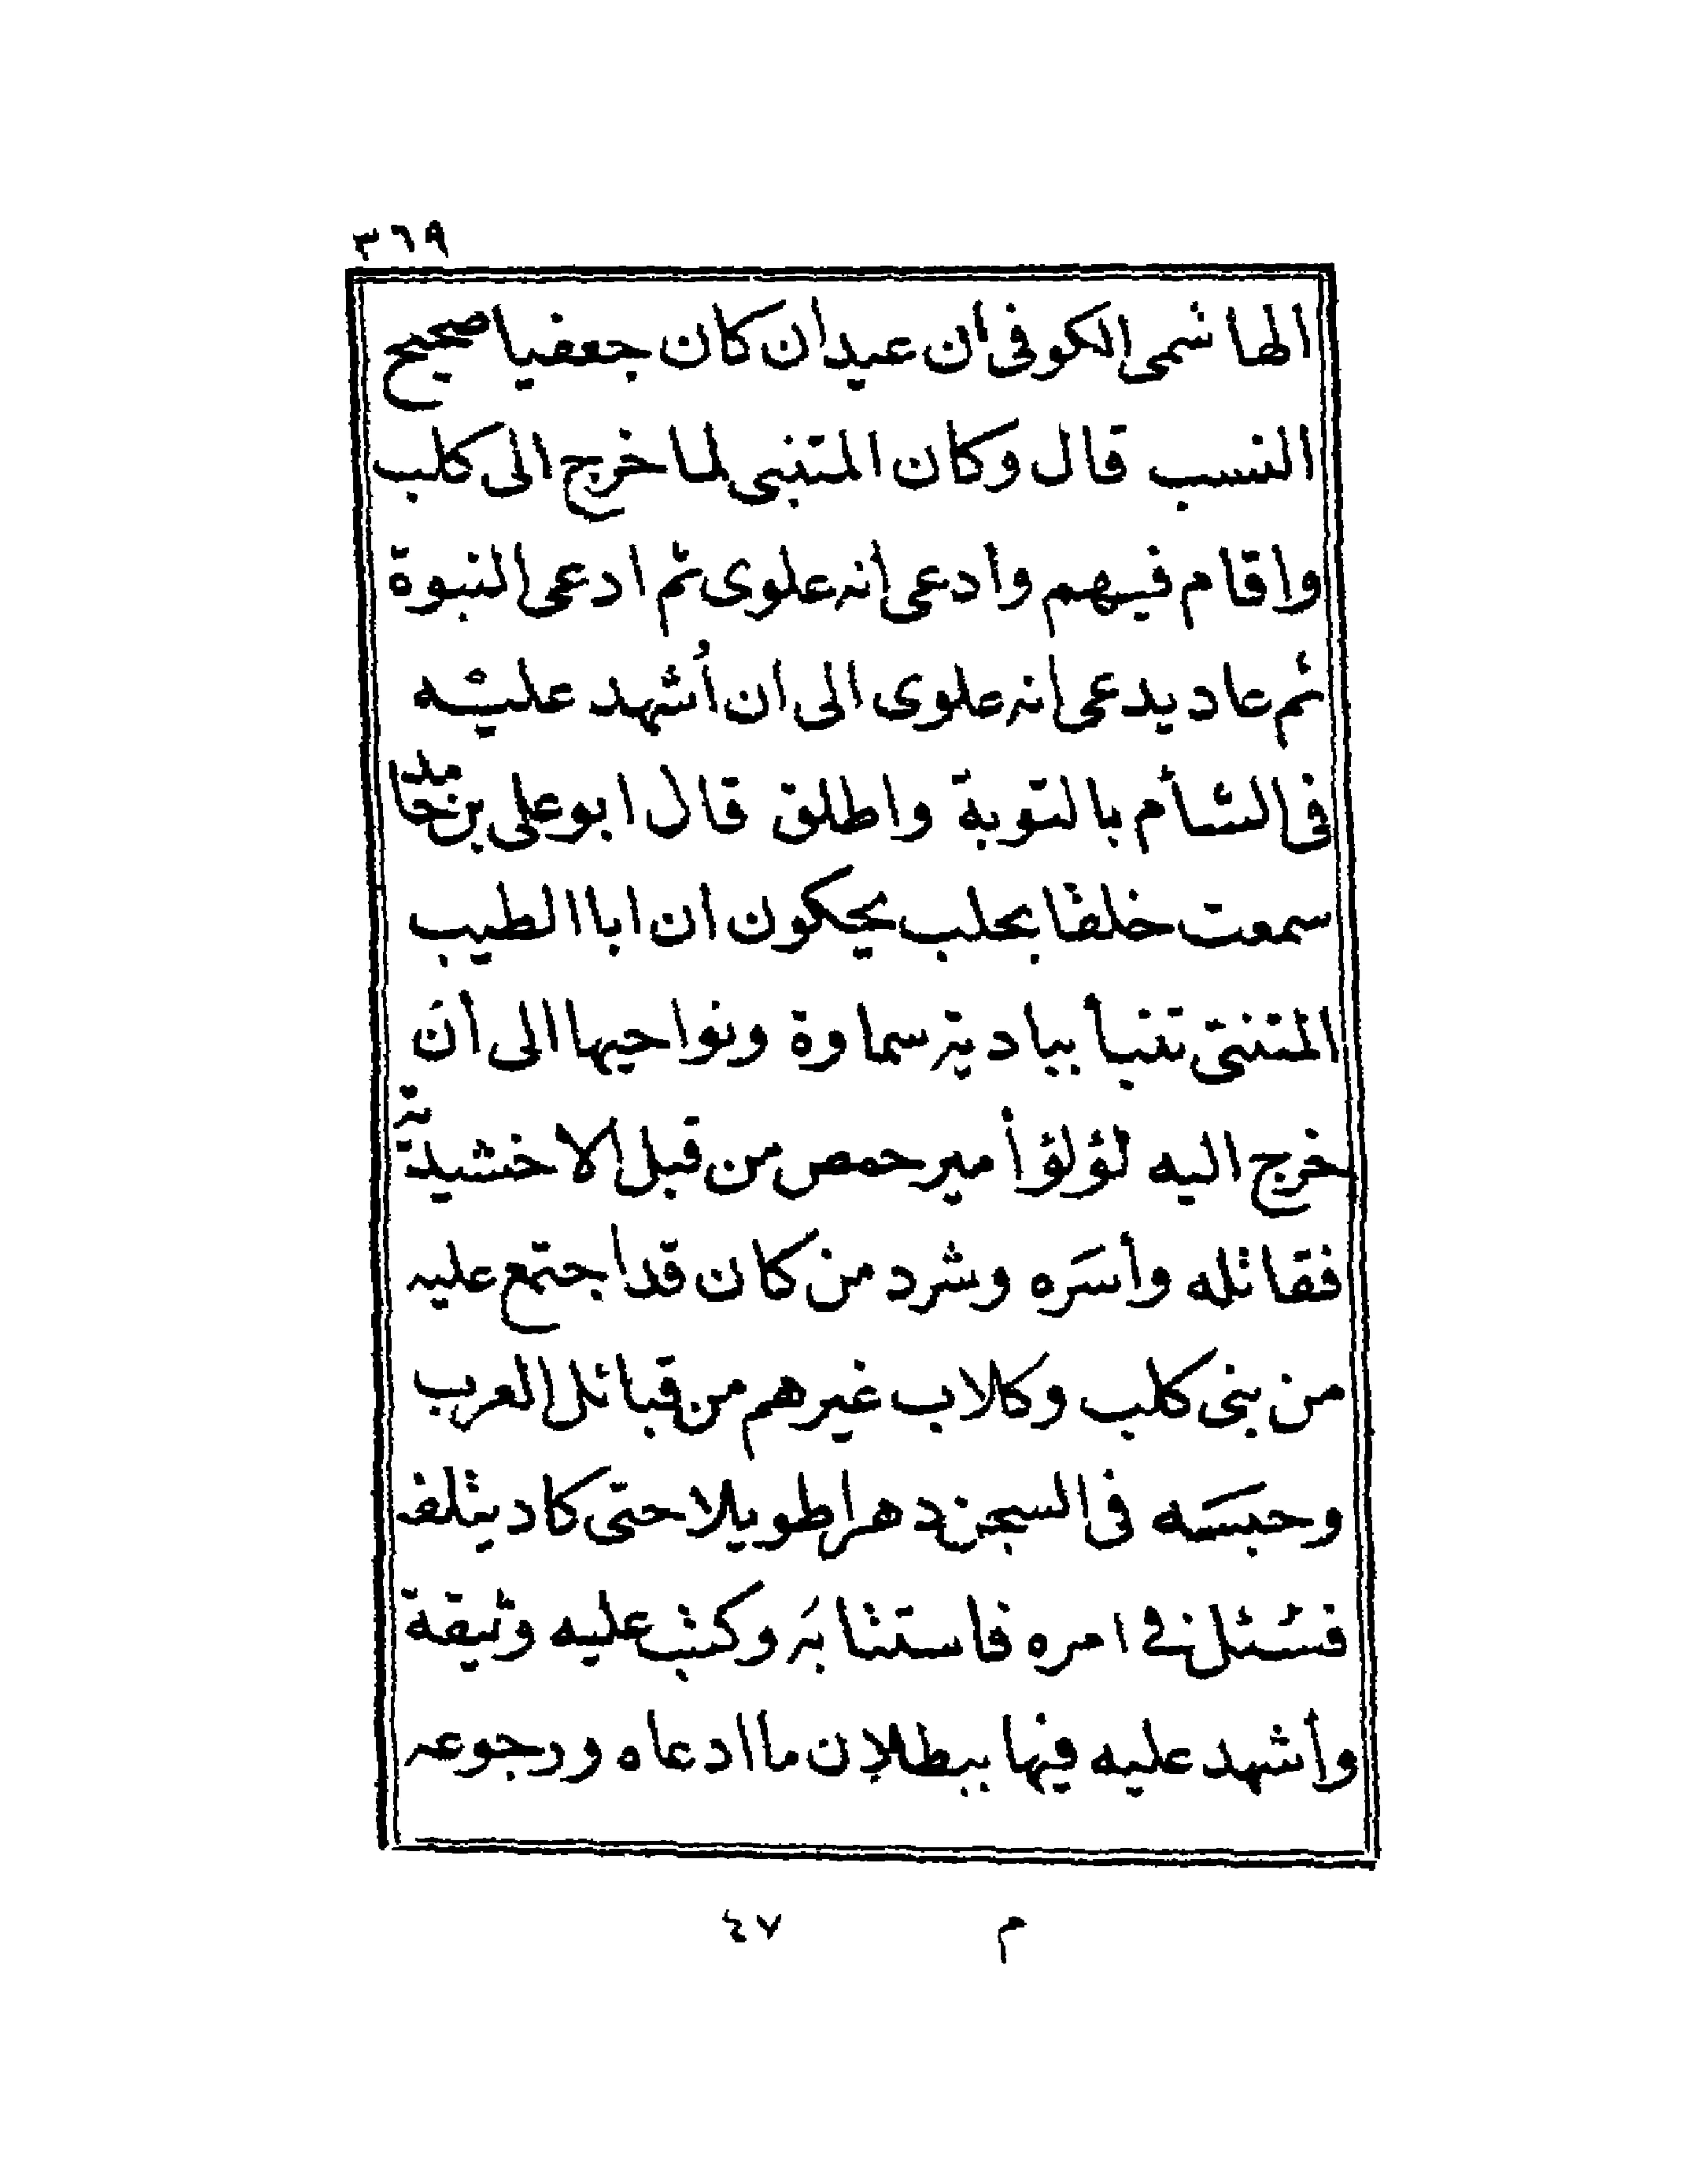 ٣٦٩
الهاشمى الكوفى أن عيدان كان جعفيا صحيح
النسب قال وكان المتنبى لما خرج الى كلب
واقام فيهم وأدعى أنه علوى ثم ادعى النبوة
ثم عاد يدعى أنه علوى الى ان أُشهد عليه
فى الشأم بالتوبة واطلق قال ابو على بن حامد
سمعت خلقا بحلب يحكون ان ابا الطيب
المتنبى تنبأ ببادية سماوة ونواحيها الى أن
خرج اليه لؤلؤ أمير حمص من قبل الاخشيدية
فقاتله وأسَره وشرد من كان قد اجتمع عليه
من بنى كلب وكلاب غيرهم من قبائل العرب
وحبسَه فى السجن دهرا طويلا حتى كاد يتلف
فسئل فى امره فاستتابَه وكتب عليه وثيقة
وأشهد عليه فيها ببطلان ما ادعاه ورجوعه
م ٤٧